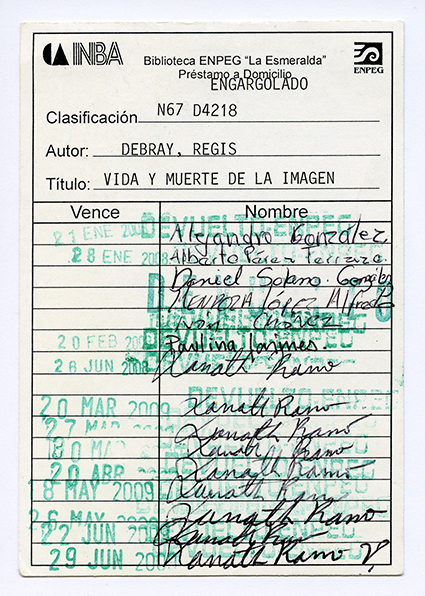 INBA
Biblioteca ENPEG "La Esmeralda"
Préstamo a Domicilio
ENPEG
ENGARGOLADO
Clasificación N67 D4218
Autor: DEBRAY, REGIS
Título: VIDA Y MUERTE DE LA IMAGEN
Vence Nombre
DEVUELTO-ENPEG
21 ENE 2008 Alejandro González
28 ENE 2008 Alberto Pérez
Daniel Solano González
MENDOZA LÓPEZ Alfredo
Iván Chávez
20 FEB 2008 Paulina Jaimes.
28 JUN 2008 Xanath Ramo
DEVUELTO-ENPEG
20 MAR 2009 Xanath Ramo
27 MAR 2009 Xanath Ramo
30 MAR Xanath Ramo
20 ABR 2009 Xanath Ramo
18 MAY 2009 Xanath Ramo
MAY Xanath Ramo
22 JUN 2009 Xanath
29 JUN 200 Xanath Ramo V.